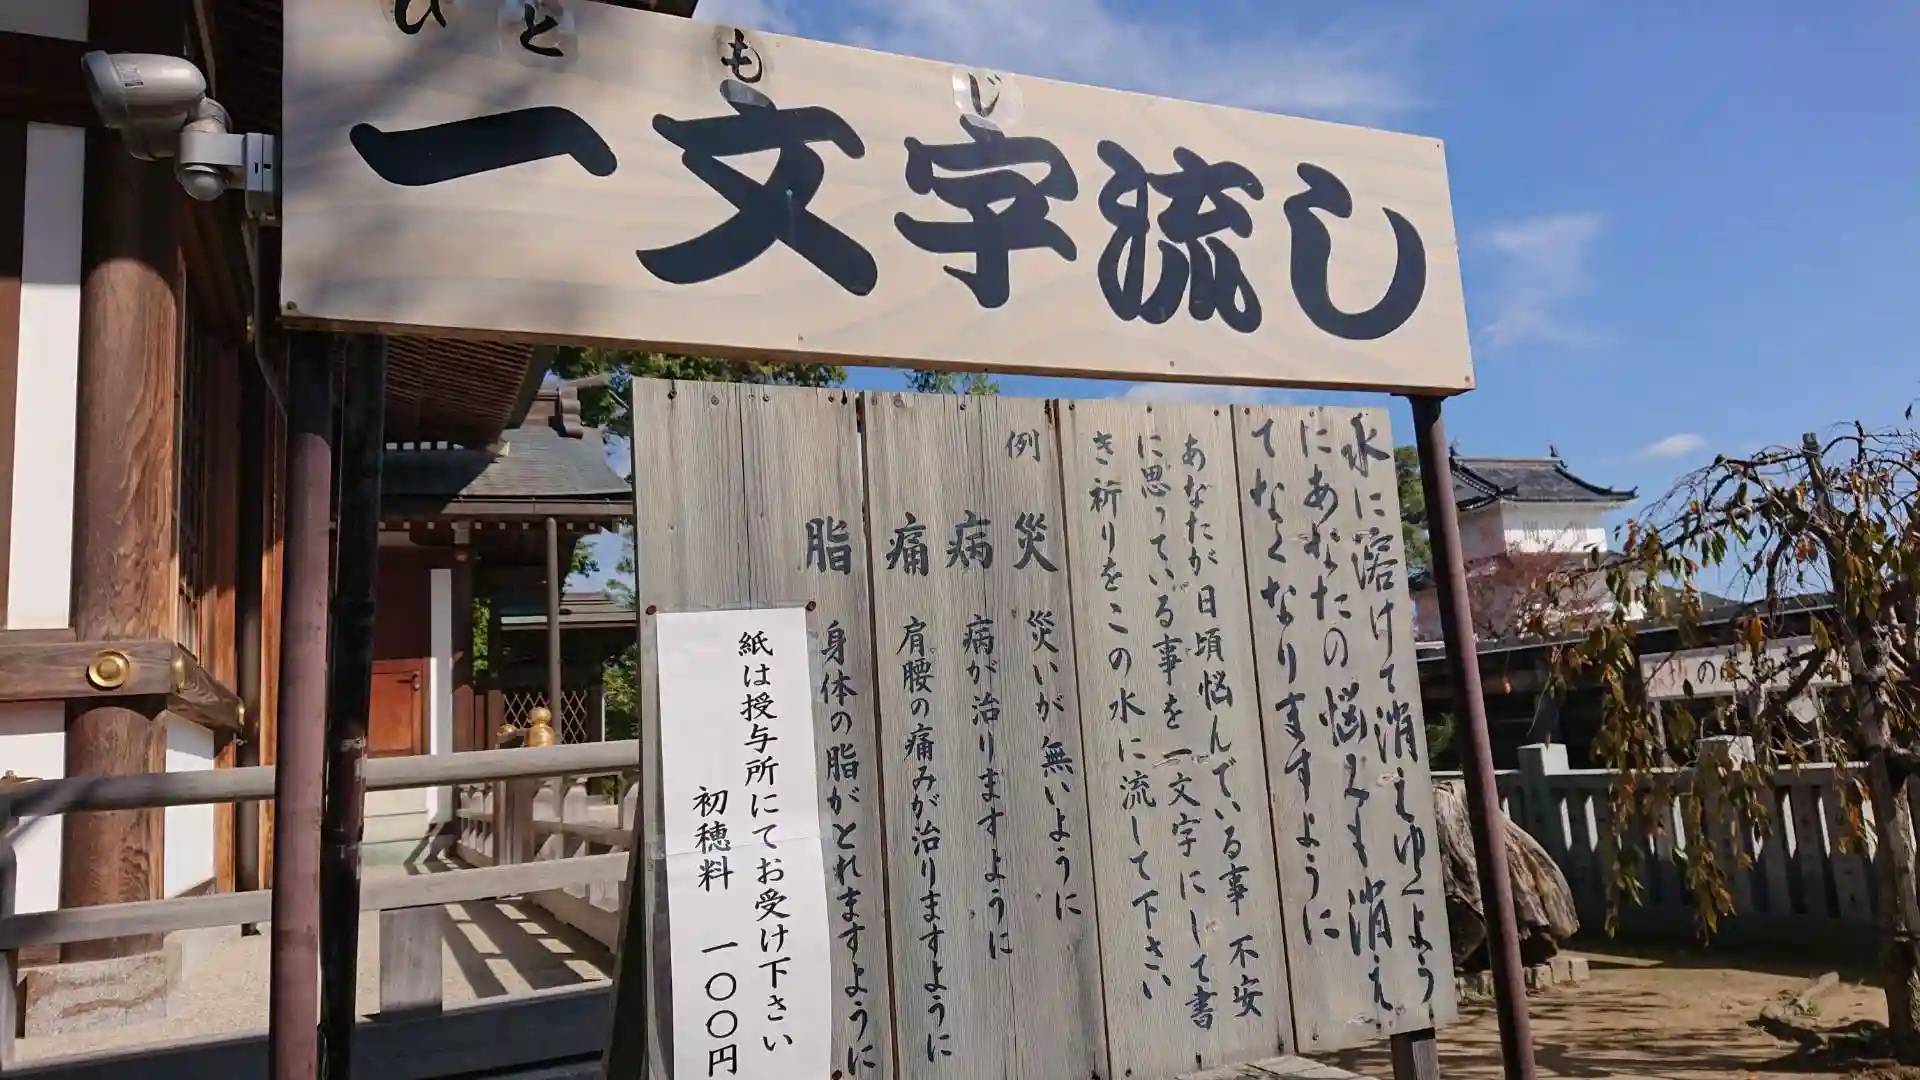 ひと も じ
一文字流し
水に溶けて消えゆくよう
にあなたの悩みも消え
てなくなりますように
あなたが日頃悩んでいる事 不安
に思っている事を一文字にして書
き祈りをこの水に流して下さい
例 災 災いが無いように
病 病が治りますように
痛 肩腰の痛みが治りますように
脂 身体の脂がとれますように
紙は授与所にてお受け下さい
初穂料 一〇〇円